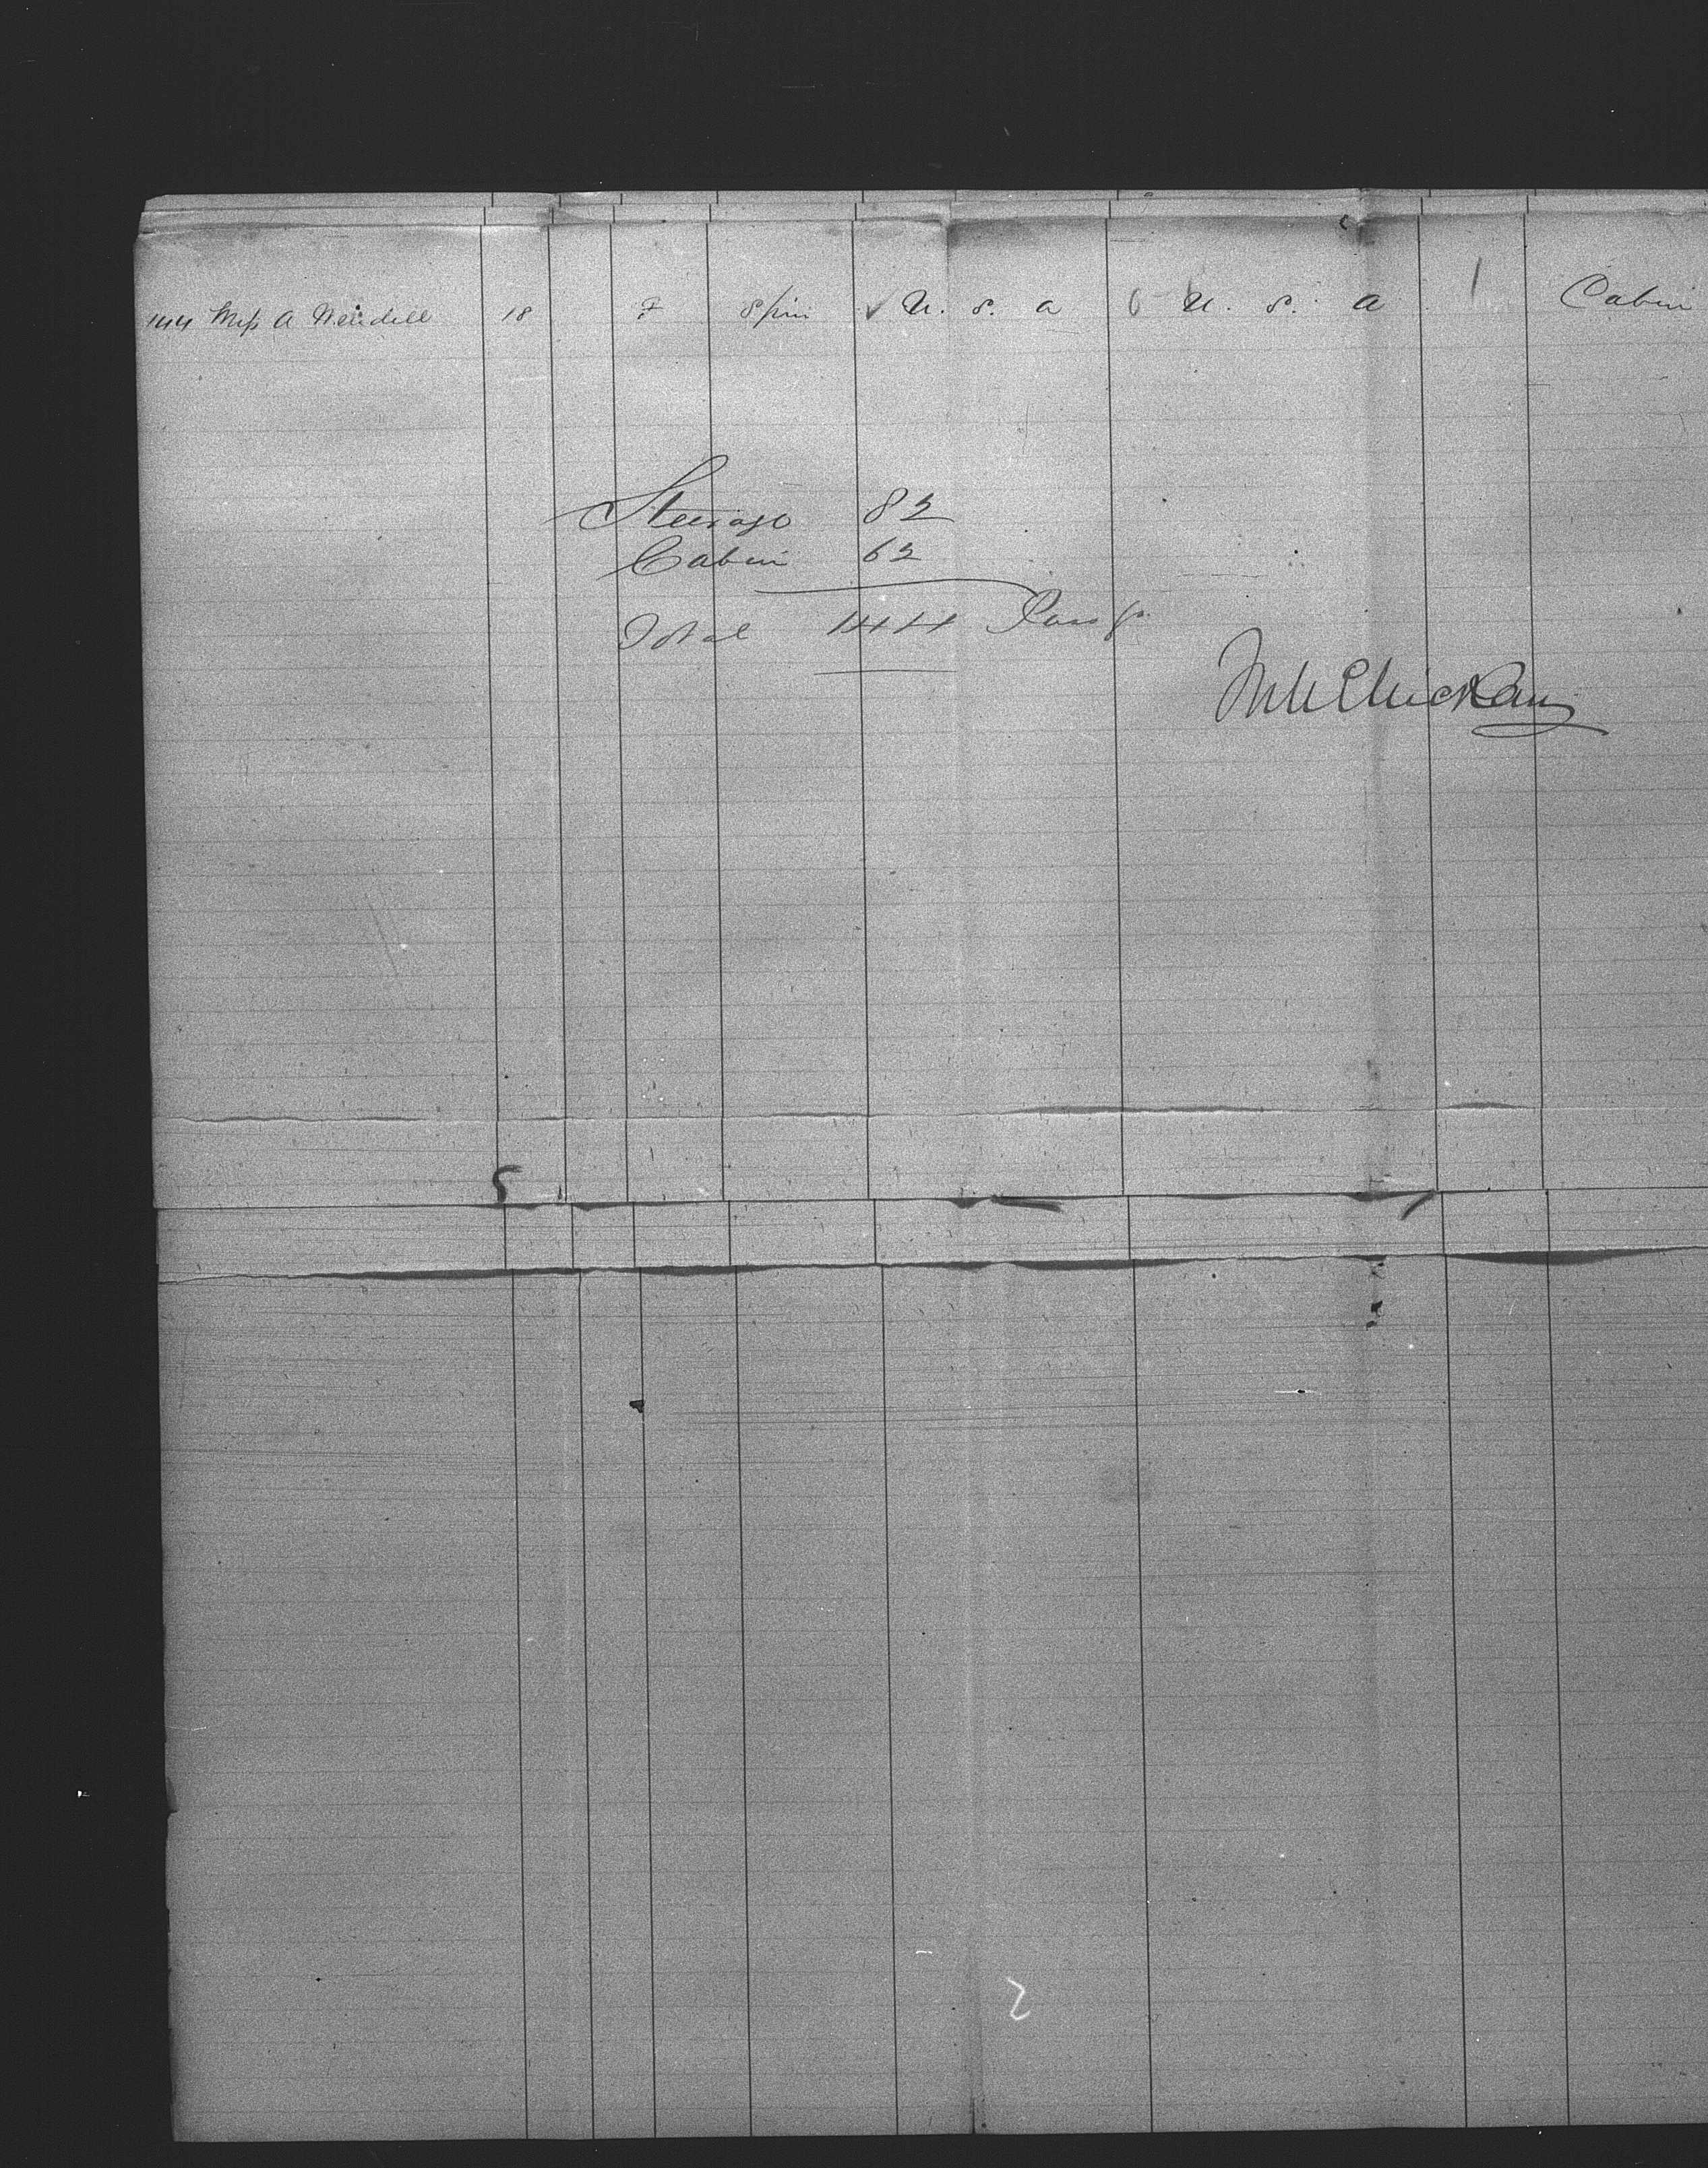 144 Miss A Wendell 18 F Spin ✓ U. S. A U. S. A 1 Cabin
Steerage 82
Cabin 62
Total 144 Pass
5
2